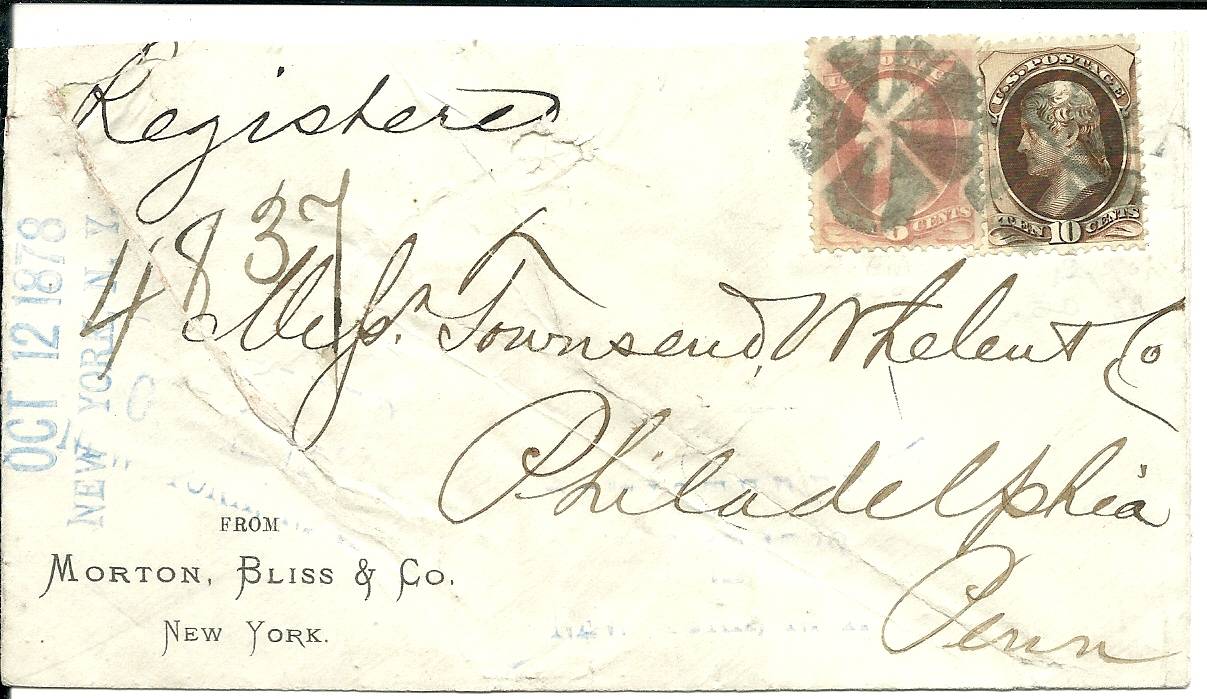 Registered
U.S. POSTAGE
TEN 10 CENTS
CENTS
4837
Mess. Townsend, Whelen & Co
Philadelphia
Penn
OCT 12 1878
NEW YORK N.Y.
FROM
MORTON, BLISS & CO.
NEW YORK.